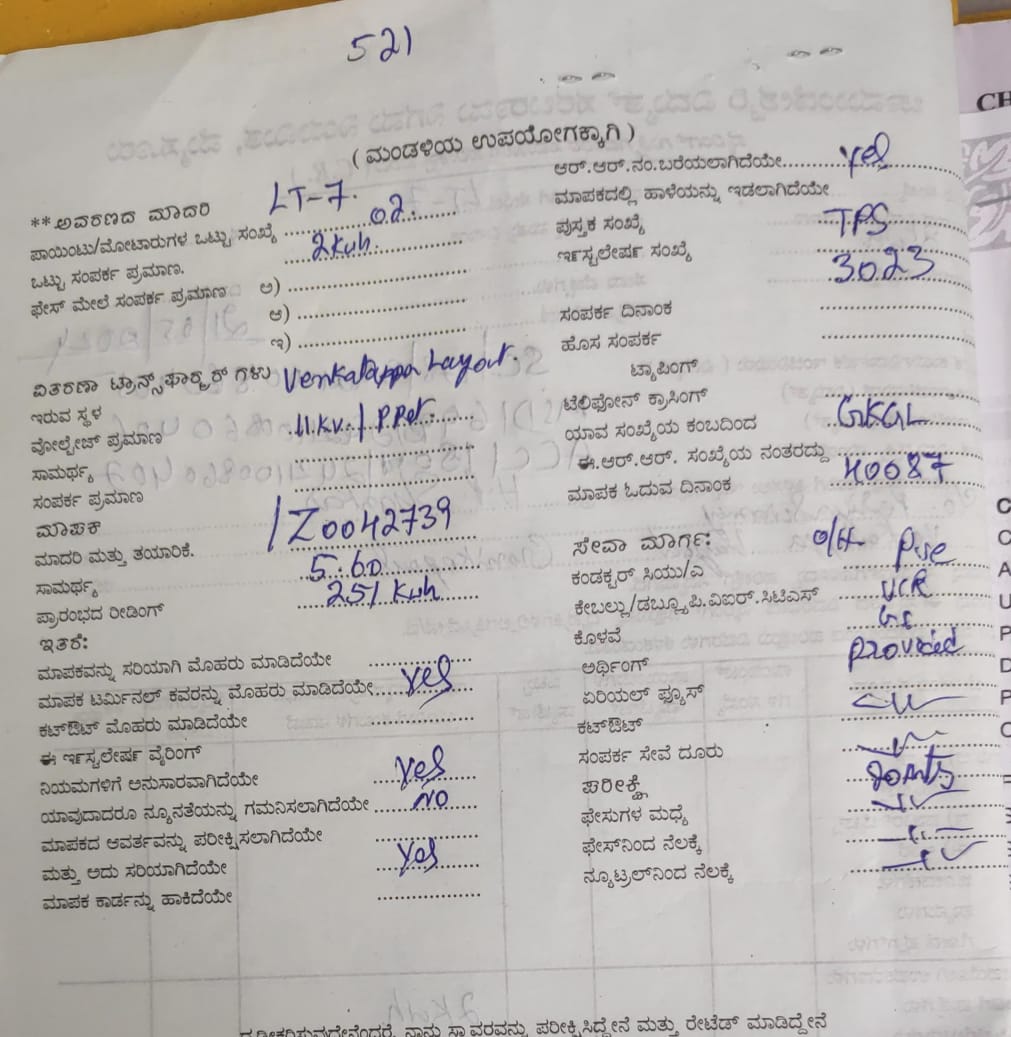 521
( ಮಂಡಳಿಯ ಉಪಯೋಗಕ್ಕಾಗಿ )
**ಅವರಣದ ಮಾದರಿ LT-7.
ಪಾಯಿಂಟು/ಮೋಟಾರುಗಳ ಒಟ್ಟು ಸಂಖ್ಯೆ 02.
ಒಟ್ಟು ಸಂಪರ್ಕ ಪ್ರಮಾಣ. 2kwh.
ಫೇಸ್ ಮೇಲೆ ಸಂಪರ್ಕ ಪ್ರಮಾಣ ಅ) ..............
ಆ) ..............
ಇ) ..............
ವಿತರಣಾ ಟ್ರಾನ್ಸ್‌ಫಾರ್ಮರ್ ಗಳು Venkatappa Layout.
ಇರುವ ಸ್ಥಳ
ವೋಲ್ಟೇಜ್ ಪ್ರಮಾಣ 11.KV.
ಸಾಮರ್ಥ್ಯ
ಸಂಪರ್ಕ ಪ್ರಮಾಣ
ಮಾಪಕ
ಮಾದರಿ ಮತ್ತು ತಯಾರಿಕೆ. /Z0042739
ಸಾಮರ್ಥ್ಯ 5.60
ಪ್ರಾರಂಭದ ರೀಡಿಂಗ್ 251 kwh
ಇತರೆ:
ಮಾಪಕವನ್ನು ಸರಿಯಾಗಿ ಮೊಹರು ಮಾಡಿದೆಯೇ
ಮಾಪಕ ಟರ್ಮಿನಲ್ ಕವರನ್ನು ಮೊಹರು ಮಾಡಿದೆಯೇ yes
ಕಟ್‌ಔಟ್ ಮೊಹರು ಮಾಡಿದೆಯೇ
ಈ ಇನ್ಸ್ಟಲೇಷನ್ ವೈರಿಂಗ್
ನಿಯಮಗಳಿಗೆ ಅನುಸಾರವಾಗಿದೆಯೇ yes
ಯಾವುದಾದರೂ ನ್ಯೂನತೆಯನ್ನು ಗಮನಿಸಲಾಗಿದೆಯೇ NO
ಮಾಪಕದ ಆವರ್ತವನ್ನು ಪರೀಕ್ಷಿಸಲಾಗಿದೆಯೇ
ಮತ್ತು ಅದು ಸರಿಯಾಗಿದೆಯೇ yes
ಮಾಪಕ ಕಾರ್ಡನ್ನು ಹಾಕಿದೆಯೇ
ಆರ್.ಆರ್.ನಂ.ಬರೆಯಲಾಗಿದೆಯೇ yes
ಮಾಪಕದಲ್ಲಿ ಹಾಳೆಯನ್ನು ಇಡಲಾಗಿದೆಯೇ
ಪುಸ್ತಕ ಸಂಖ್ಯೆ TPS
ಇನ್ಸ್ಟಲೇಷನ್ ಸಂಖ್ಯೆ 3023
ಸಂಪರ್ಕ ದಿನಾಂಕ
ಹೊಸ ಸಂಪರ್ಕ
ಟ್ಯಾಪಿಂಗ್
ಟೆಲಿಫೋನ್ ಕ್ರಾಸಿಂಗ್
ಯಾವ ಸಂಖ್ಯೆಯ ಕಂಬದಿಂದ GKGL
ಈ.ಆರ್.ಆರ್. ಸಂಖ್ಯೆಯ ನಂತರದ್ದು
ಮಾಪಕ ಓದುವ ದಿನಾಂಕ 40087
ಸೇವಾ ಮಾರ್ಗ: O/H-
ಕಂಡಕ್ಟರ್ ಸಿಯು/ಎ
ಕೇಬಲ್ಲು/ಡಬ್ಲ್ಯೂ.ಪಿ.ವಿಐರ್.ಸಿಟಿಎಸ್
ಕೊಳವೆ
ಅರ್ಥಿಂಗ್ provided
ಏರಿಯಲ್ ಫ್ಯೂಸ್
ಕಟ್‌ಔಟ್
ಸಂಪರ್ಕ ಸೇವೆ ದೂರು
ಪರೀಕ್ಷೆ
ಫೇಸುಗಳ ಮಧ್ಯೆ
ಫೇಸ್‌ನಿಂದ ನೆಲಕ್ಕೆ
ನ್ಯೂಟ್ರಲ್‌ನಿಂದ ನೆಲಕ್ಕೆ
ನಾನು ಸ್ಥಾವರವನ್ನು ಪರೀಕ್ಷಿಸಿದ್ದೇನೆ ಮತ್ತು ರೇಟೆಡ್ ಮಾಡಿದ್ದೇನೆ
CH